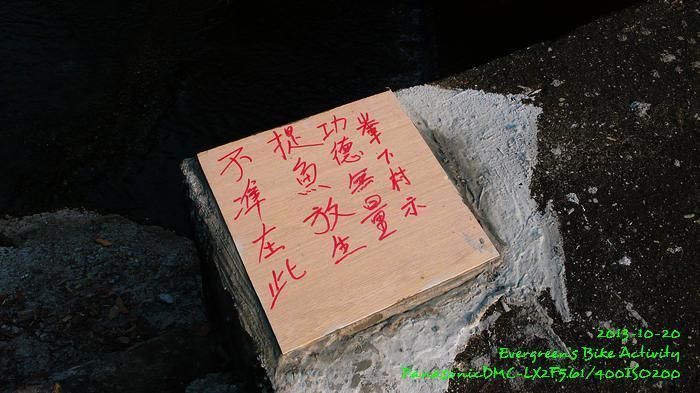 不準在此
捉魚放生
功德無量
峯下村示
2013-10-20
Evergreens Bike Activity
PanasonicDMC-LX2F5.61/400ISO200